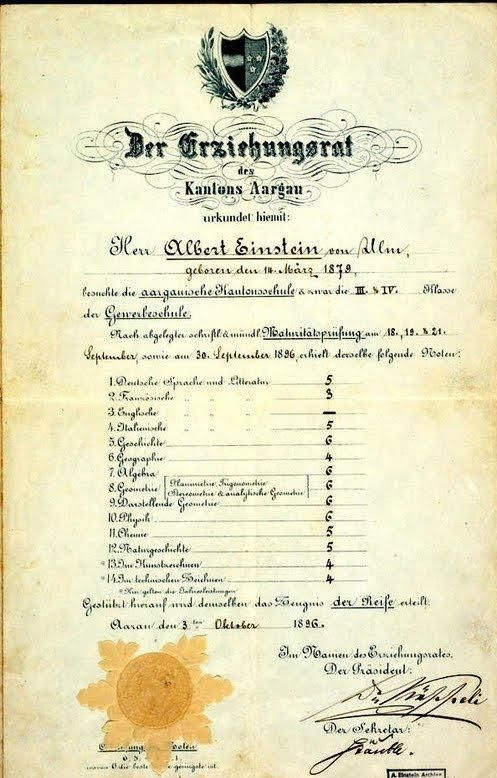 Der Erziehungsrat
des
Kantons Aargau
urkundet hiemit:
Herr Albert Einstein von Ulm,
geboren den 14. März 1879,
besuchte die aargauische Kantonsschule & zwar die III. & IV. Klasse
der Gewerbeschule.
Nach abgelegter schriftl. & mündl. Maturitätsprüfung am 18., 19. & 21.
September, sowie am 30. September 1896, erhielt derselbe folgende Noten:
1. Deutsche Sprache und Litteratur 5
2. Französische " " " 3
3. Englische " " " —
4. Italienische " " " 5
5. Geschichte 6
6. Geographie 4
7. Algebra 6
8. Geometrie Planimetrie, Trigonometrie 6
Stereometrie & analytische Geometrie
9. Darstellende Geometrie 6
10. Physik 6
11. Chemie 5
12. Naturgeschichte 5
*13. Im Kunstzeichnen 4
*14. Im technischen Zeichnen 4
*Hier gelten die Jahresleistungen.
Gestützt hierauf wird demselben das Zeugnis der Reife erteilt.
Aarau den 3ten Oktober 1896.
Im Namen des Erziehungsrates,
Der Präsident:
Der Sekretär:
Noten
6. 5. 1.
6 die beste geringste ist.
A. Einstein Archives